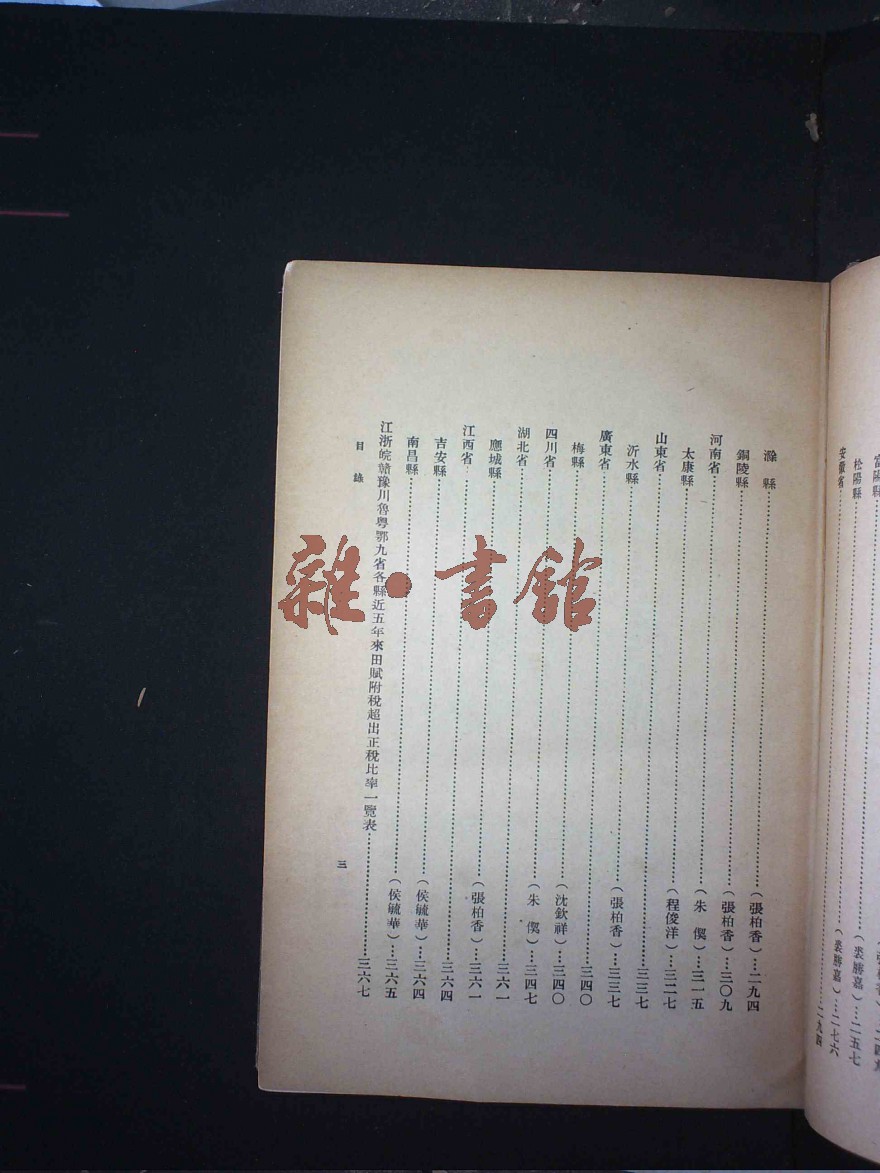 富陽縣……(裘勝嘉)…二五七
松陽縣……(裘勝嘉)…二七六
安徽省……二九四
滁縣……(張柏香)…二九四
銅陵縣……(張柏香)…三〇九
河南省……(朱偰)…三一五
太康縣……(程俊洋)…三二七
山東省……三三七
沂水縣……(張柏香)…三三七
廣東省……三四〇
梅縣……(沈欽祥)…三四〇
四川省……(朱偰)…三四七
湖北省……三六一
應城縣……(張柏香)…三六一
江西省……三六四
吉安縣……(侯毓華)…三六四
南昌縣……(侯毓華)…三六五
江浙皖贛豫川魯粤鄂九省各縣近五年來田賦附稅超出正稅比率一覽表……三六七
目錄
三
雜·書館